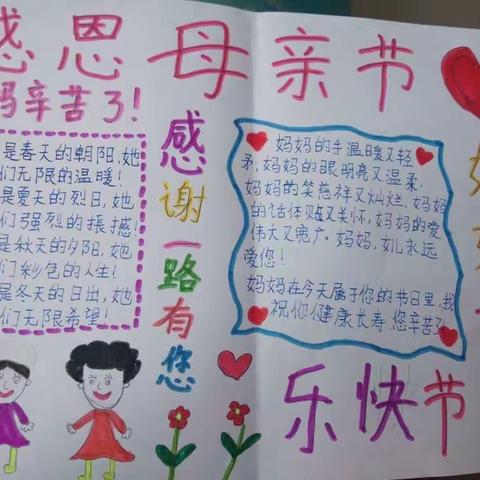 感恩母亲节
妈辛苦了!
是春天的朝阳,她
们无限的温暖!
是夏天的烈日,她
们强烈的振撼!
是秋天的夕阳,她
们彩色的人生!
是冬天的日出,她
们无限希望!
感谢一路有您
妈妈的手温暖又轻
柔,妈妈的眼明亮又温柔,
妈妈的笑慈祥又灿烂,妈妈
的话体贴又关怀,妈妈的爱
伟大又宽广。妈妈,女儿永远
爱您!
妈妈在今天属于你的节日里,我
祝你健康长寿,您辛苦了
乐快节